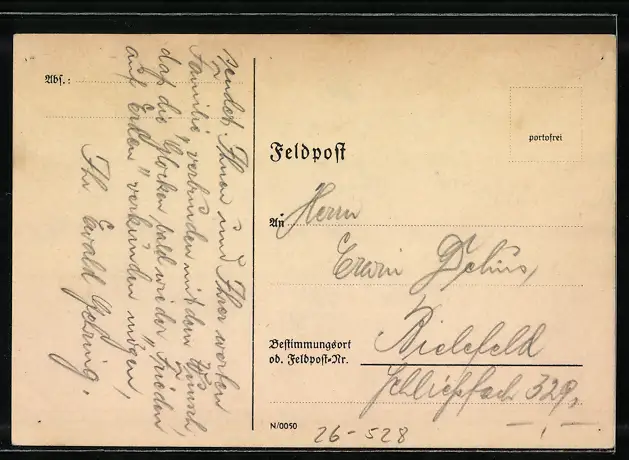 Abs.:
sendet Ihnen und Ihrer werten
Familie, verbunden mit dem Wunsch,
daß die Glocken bald wieder „Frieden
auf Erden" verkünden mögen,
Ihr Ewald Gehring.
Feldpost
portofrei
An Herrn
Erwin Delius,
Bestimmungsort
od. Feldpost-Nr.
Bielefeld
Schließfach 329.
N/0050
26-528